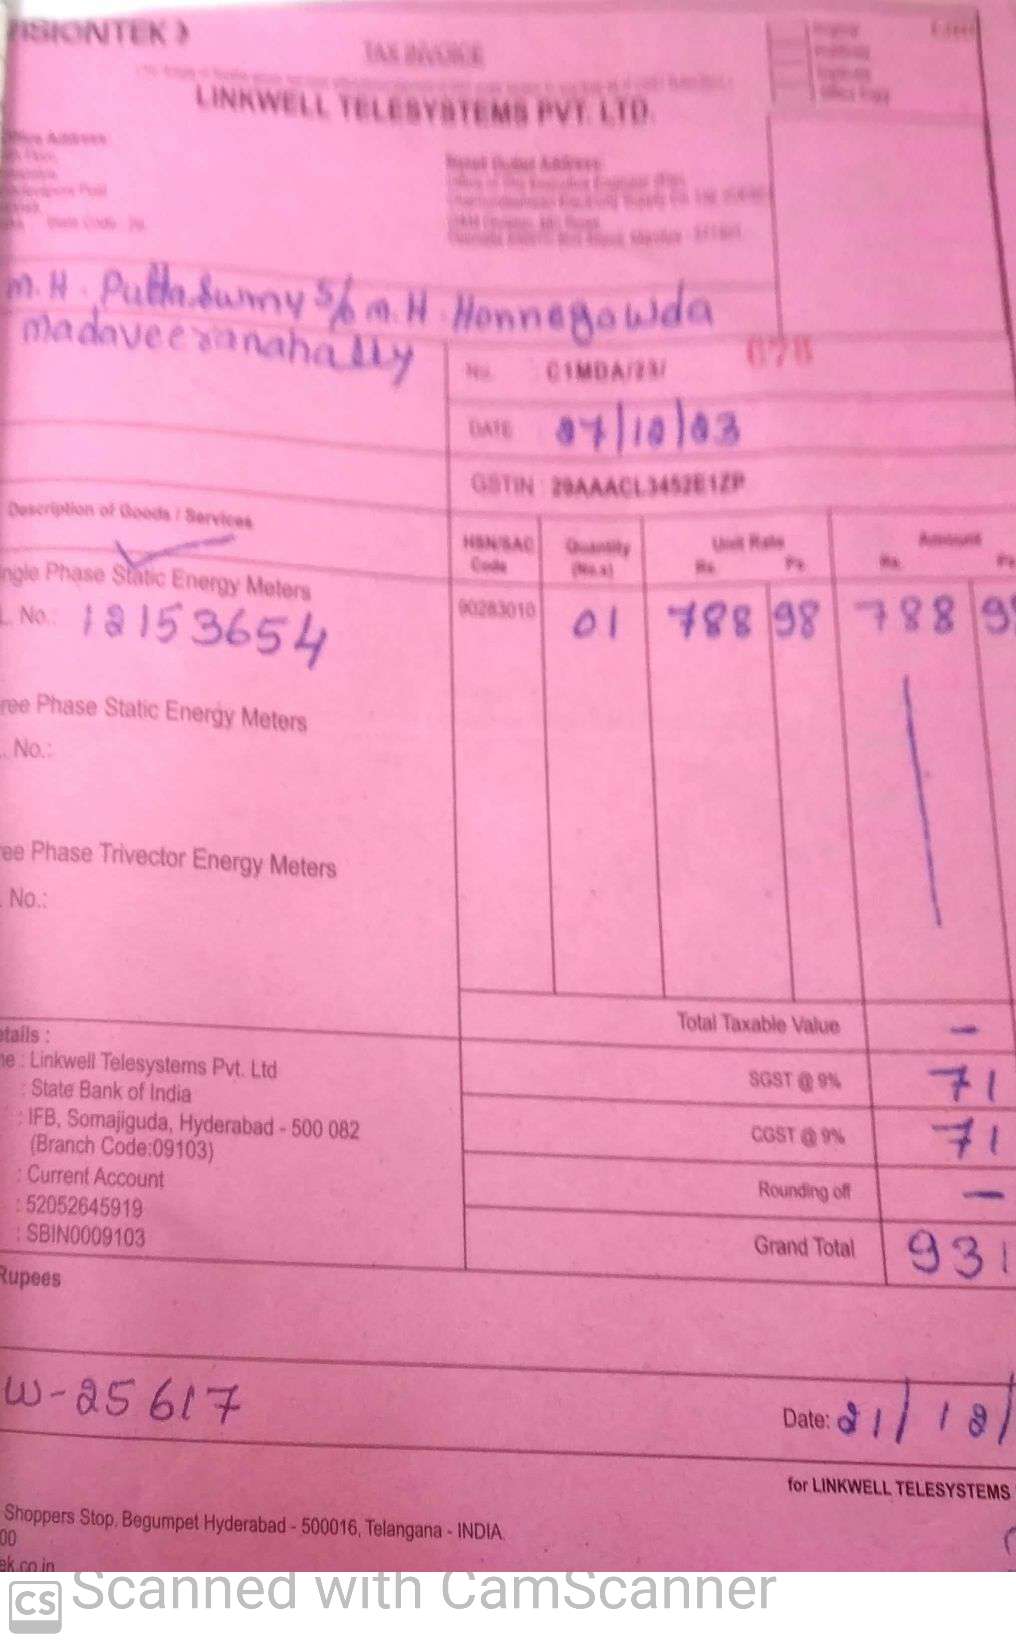 ISIONTEK
TAX INVOICE
LINKWELL TELESYSTEMS PVT. LTD.
Address
Retail Outlet Address
State Code : 29
M.H. Puttaswmy S/o M.H. Honnegowda
Madaveeranahally
No. C1MDA/23/ 678
DATE 07/10/03
GSTIN : 29AAACL3452E1ZP
Description of Goods / Services
HSN/SAC Code Quantity (No.s) Unit Rate Rs. Ps. Amount Rs. Ps.
ngle Phase Static Energy Meters
L. No.: 12153654 90283010 01 788 98 788 98
ree Phase Static Energy Meters
. No.:
ee Phase Trivector Energy Meters
. No.:
Total Taxable Value –
etails :
me : Linkwell Telesystems Pvt. Ltd
SGST @ 9% 71
: State Bank of India
: IFB, Somajiguda, Hyderabad - 500 082
CGST @ 9% 71
(Branch Code:09103)
: Current Account
Rounding off –
: 52052645919
: SBIN0009103
Grand Total 931
Rupees
W-25617
Date: 21/12/
for LINKWELL TELESYSTEMS
Shoppers Stop, Begumpet Hyderabad - 500016, Telangana - INDIA.
00
ek.co.in
CS Scanned with CamScanner